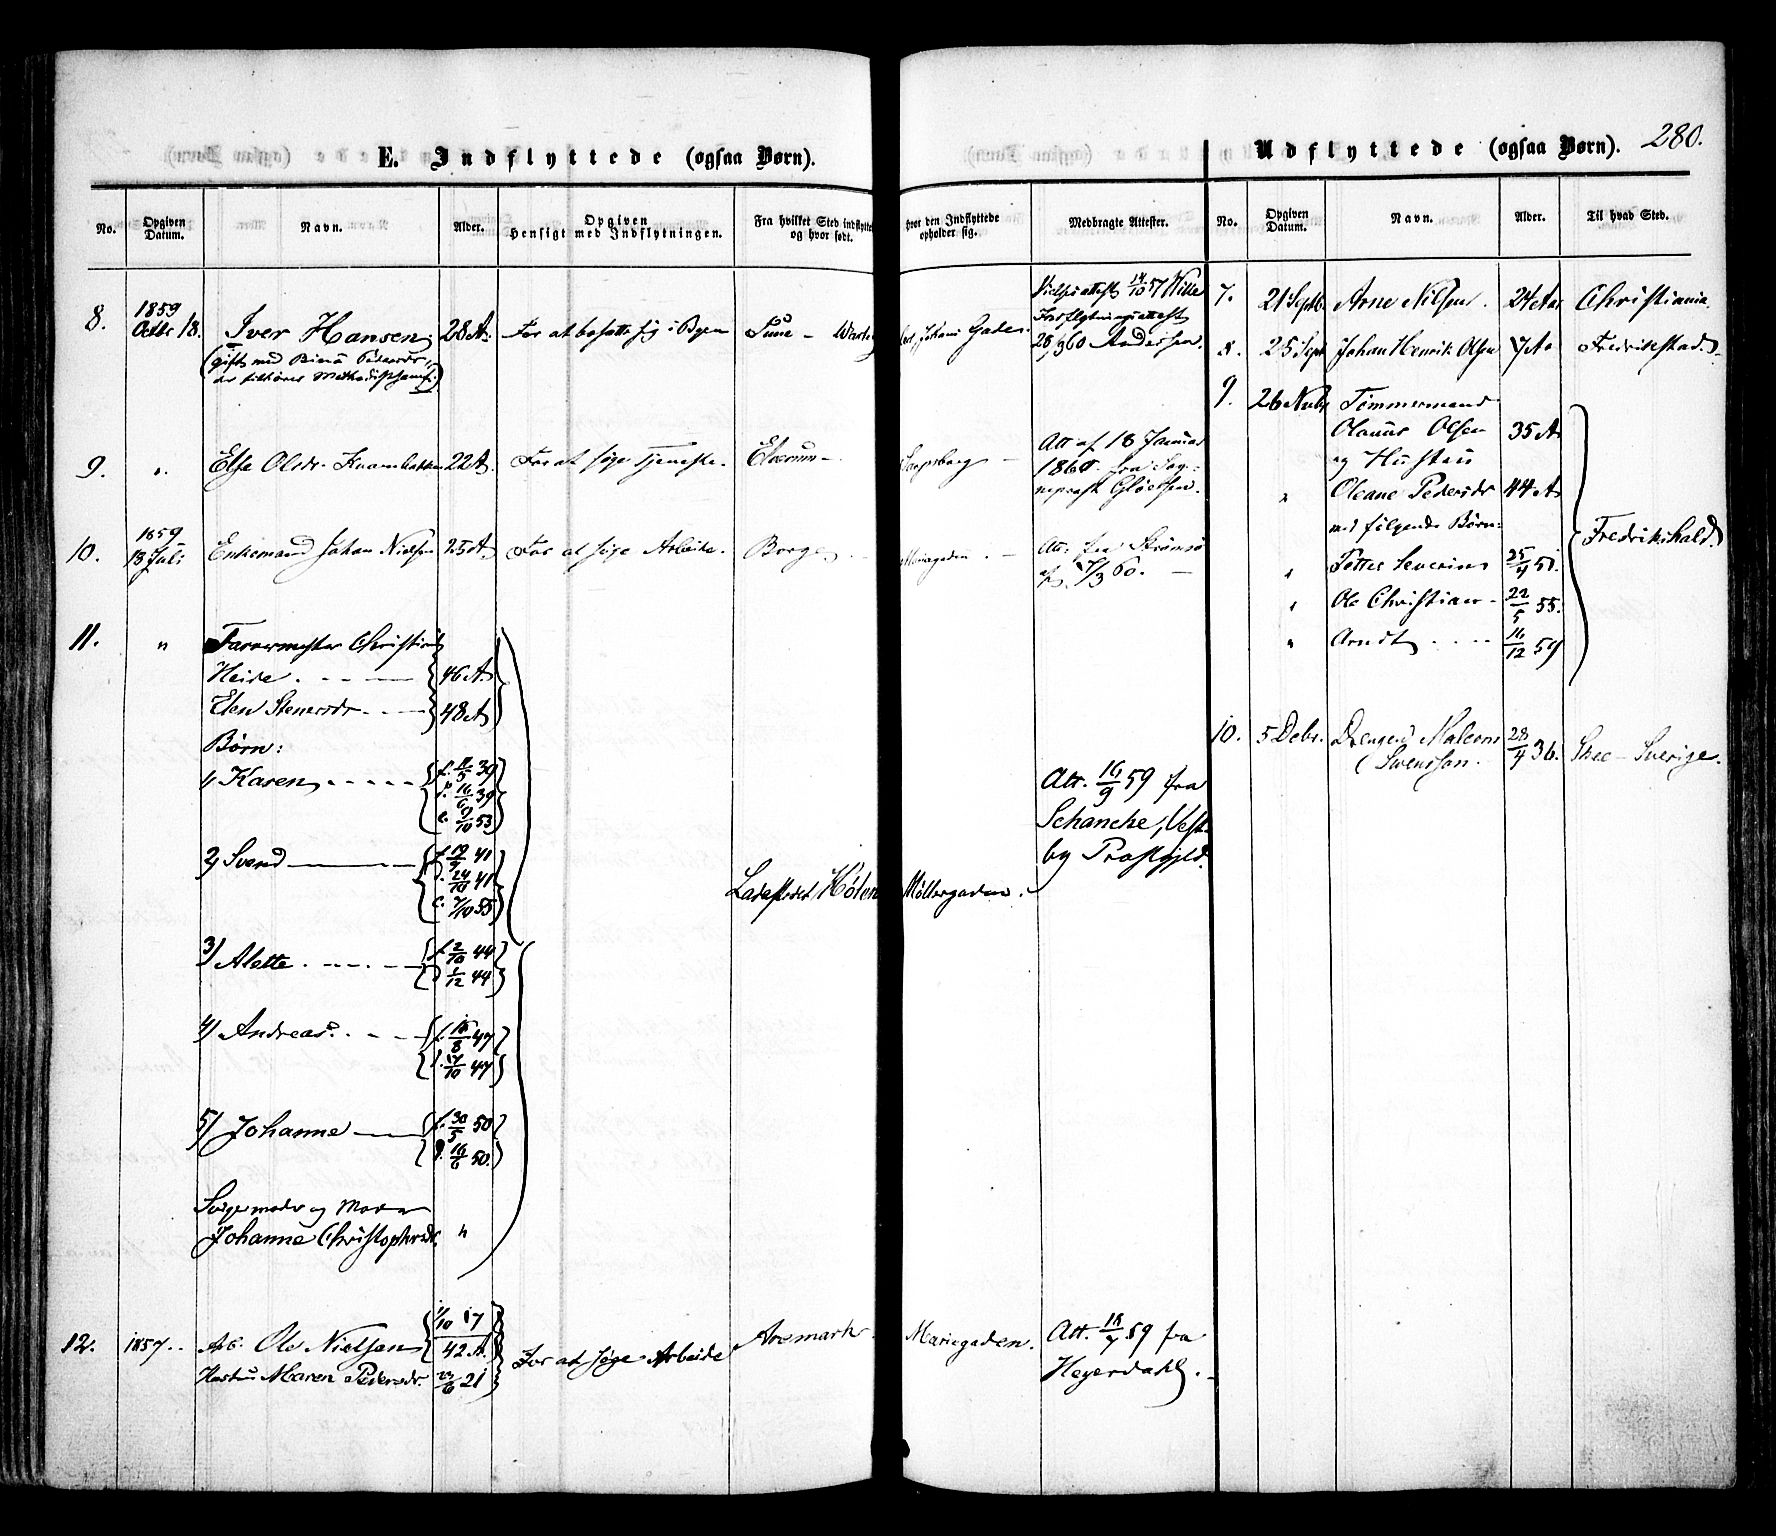 E. Indflyttede (ogsaa Børn).
No.
Opgiven Datum.
Navn.
Alder.
Opgiven Hensigt med Indflytningen.
Fra hvilket Sted indflytte og hvor født.
hvor den Indflyttede opholder sig.
Medbragte Attester.
8.
1859
Octbr 18.
Iver Hansen
28 A.
For at bosætte sig i Byen
Tune -
Gaden.
(gift med Pedersdr.,
der tilhører Methodistsamf.)
14/10 57 Wille
Indflytningsattest
Andersen.
9.
"
Else Olsdr.
22 A.
For at søge Tjeneste.
Elverum -
Sarpsborg -
Att af 18 Januar
1860 fra Sog-
neprest
10.
1859
13 Juli
Enkemand Johan Nielsen
25 A.
For at søge Arbeide.
Borge
Mariegaden. -
Att. fra Strømsø
af 60. -
11.
"
Farvermester Christian
Heide. - - -
46 A.
Elen Stenersdr. - -
48 A
Børn:
1/ Karen - - - - -
f. 11/5 39
d. 16/6 39
c. 9/10 53
2/ Svend
f. 19/9 41
d. 24/10 41
c. 7/10 55
Ladestedet Hølen
Møllergaden.
Att. 16/9 59 fra
Schanche, Vest-
by Præstgjeld.
3/ Alette. - - - -
f. 2/10 44
d 1/12 44
4/ Andreas. - - -
f. 15/8 47
d. 17/10 47
5/ Johanne
f. 30/5 50
d. 16/6 50.
og Moder
Johanne Christophersdr.
"
12.
1857. .
Arb. Ole Nielsen
1/10 17
42 A.
Hustru Maren Pedersdr.
21
For at søge Arbeide
Aremark.
Mariegaden.
Att. 18/7 59 fra
Heyerdahl. -
Udflyttede (ogsaa Børn).
280.
No.
Opgiven Datum.
Navn.
Alder.
Til hvad Sted.
7.
21 Septb.
Arne Nilsen.
24 Aar
Christiania.
8.
25 Sept
Johan Henrik Olsen
7 A.
Fredrikstad.
9.
26 Novbr
Tømmermand
Olaus Olsen
35 A.
og Hustru
"
Oleane Pedersdr
44 A
med følgende Børn:
Fredrikshald.
"
Petter Severin
25/4 51.
"
Ole Christian -
22/5 55.
"
Arndt - - - -
16/12 59
10.
5 Debr.
Drengen Malcom
Svensson.
28/4 36.
Skee - Sverige.